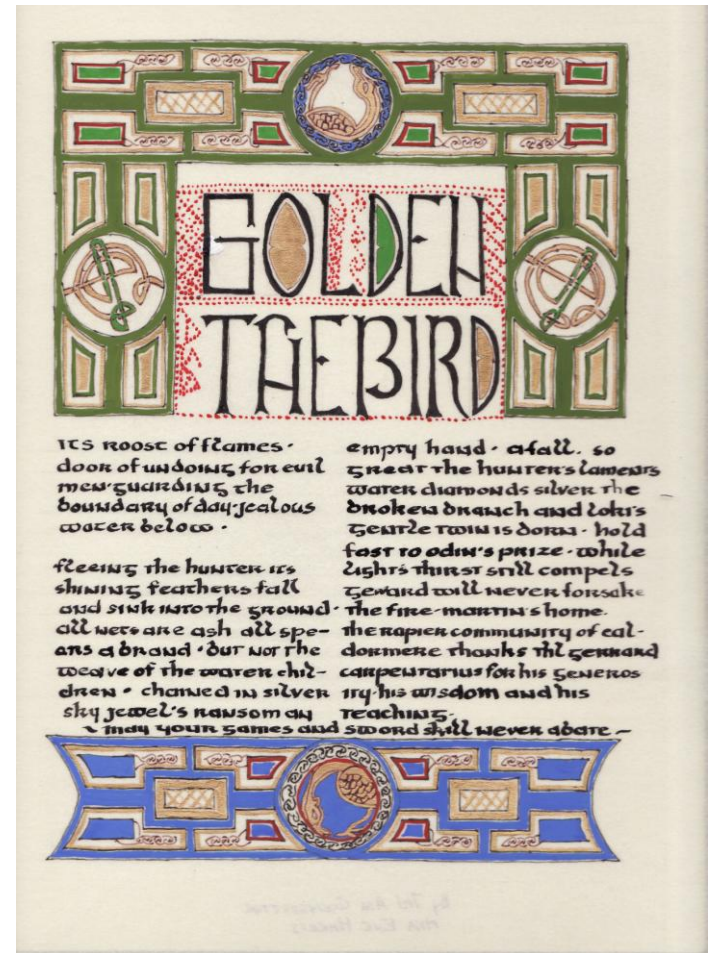 GOLDEN
THE BIRD
its roost of flames·
door of undoing for evil
men·guarding the
boundary of day·jealous
water below·
fleeing the hunter its
shining feathers fall
and sink into the ground·
all nets are ash all spe-
ars a brand·but not the
weave of the water chil-
dren· chained in silver
sky jewel's ransom an
empty hand· a fall. so
great the hunter's laments
water diamonds silver the
broken branch and loki's
gentle twin is born· hold
fast to odin's prize·while
light's thirst still compels
geward will never forsake
the fire-martin's home.
the rapier community of eal-
dormere thanks thl gerrard
carpentarius for his generos
ity·his wisdom and his
teaching·
~ may your games and sword skill never abate ~